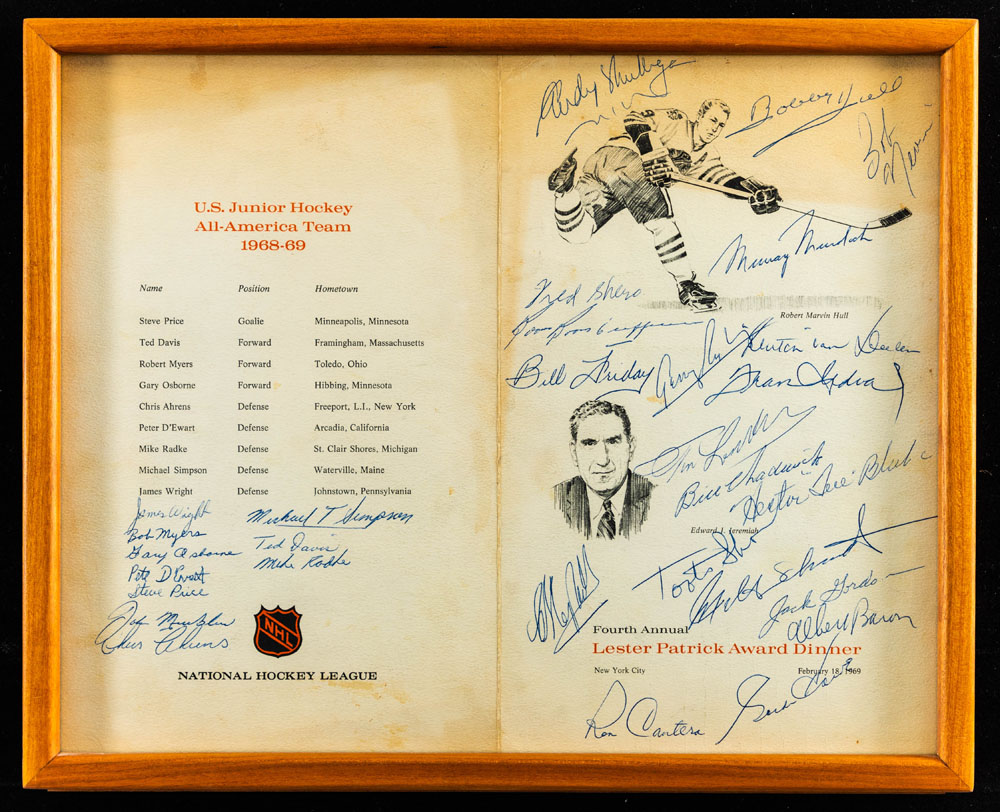 U.S. Junior Hockey
All-America Team
1968-69
Name Position Hometown
Steve Price Goalie Minneapolis, Minnesota
Ted Davis Forward Framingham, Massachusetts
Robert Myers Forward Toledo, Ohio
Gary Osborne Forward Hibbing, Minnesota
Chris Ahrens Defense Freeport, L.I., New York
Peter D'Ewart Defense Arcadia, California
Mike Radke Defense St. Clair Shores, Michigan
Michael Simpson Defense Waterville, Maine
James Wright Defense Johnstown, Pennsylvania
James Wright
Bob Myers
Gary Osborne
Pete D'Ewart
Steve Price
Michael T Simpson
Ted Davis
Mike Radke
Chris Ahrens
NHL
NATIONAL HOCKEY LEAGUE
Andy Mulligan
Bobby Hull
Murray Murdoch
Robert Marvin Hull
Fred Shero
Boom Boom Geoffrion
Bill Friday
Bill Chadwick
Hector "Toe" Blake
Edward J. Jeremiah
Toots Shor
Jack Gordon
Albert Baron
Fourth Annual
Lester Patrick Award Dinner
New York City February 18, 1969
Ron Cantera